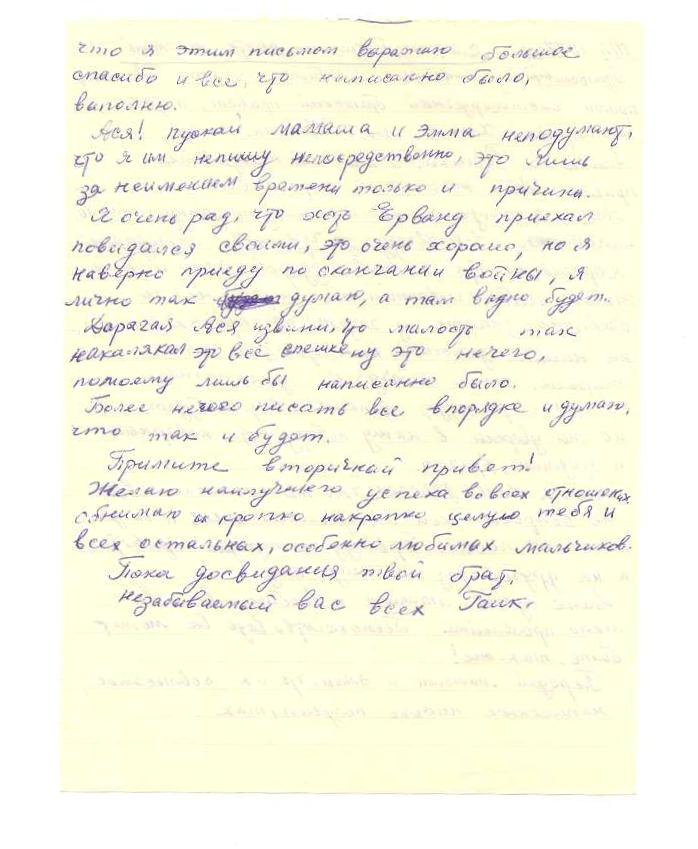 что я этим письмом выражаю большое
спасибо и все, что написанно было,
выполню.
Ася! пускай мамаша и Эмма неподумают,
что я им непишу непосредственно, это лишь
за неимением времени только и причина.
Я очень рад, что хоть Ерванд приехал
повидался своими, это очень хорошо, но я
наверно приеду по окончании войны, я
лично так думаю, а там видно будет.
Дорагая Ася извини, что малость так
накалякал это все спешке ну это нечего,
помоему лишь бы написанно было.
Более нечего писать все впорядке и думаю,
что так и будет.
Примите вторичный привет!
Желаю наилучшего успеха вовсех отношениях
обнимаю и кропко накропко целую тебя и
всех остальных, особенно любимых мальчиков.
Пока досвидания твой брат,
незабываемый вас всех Гаик.